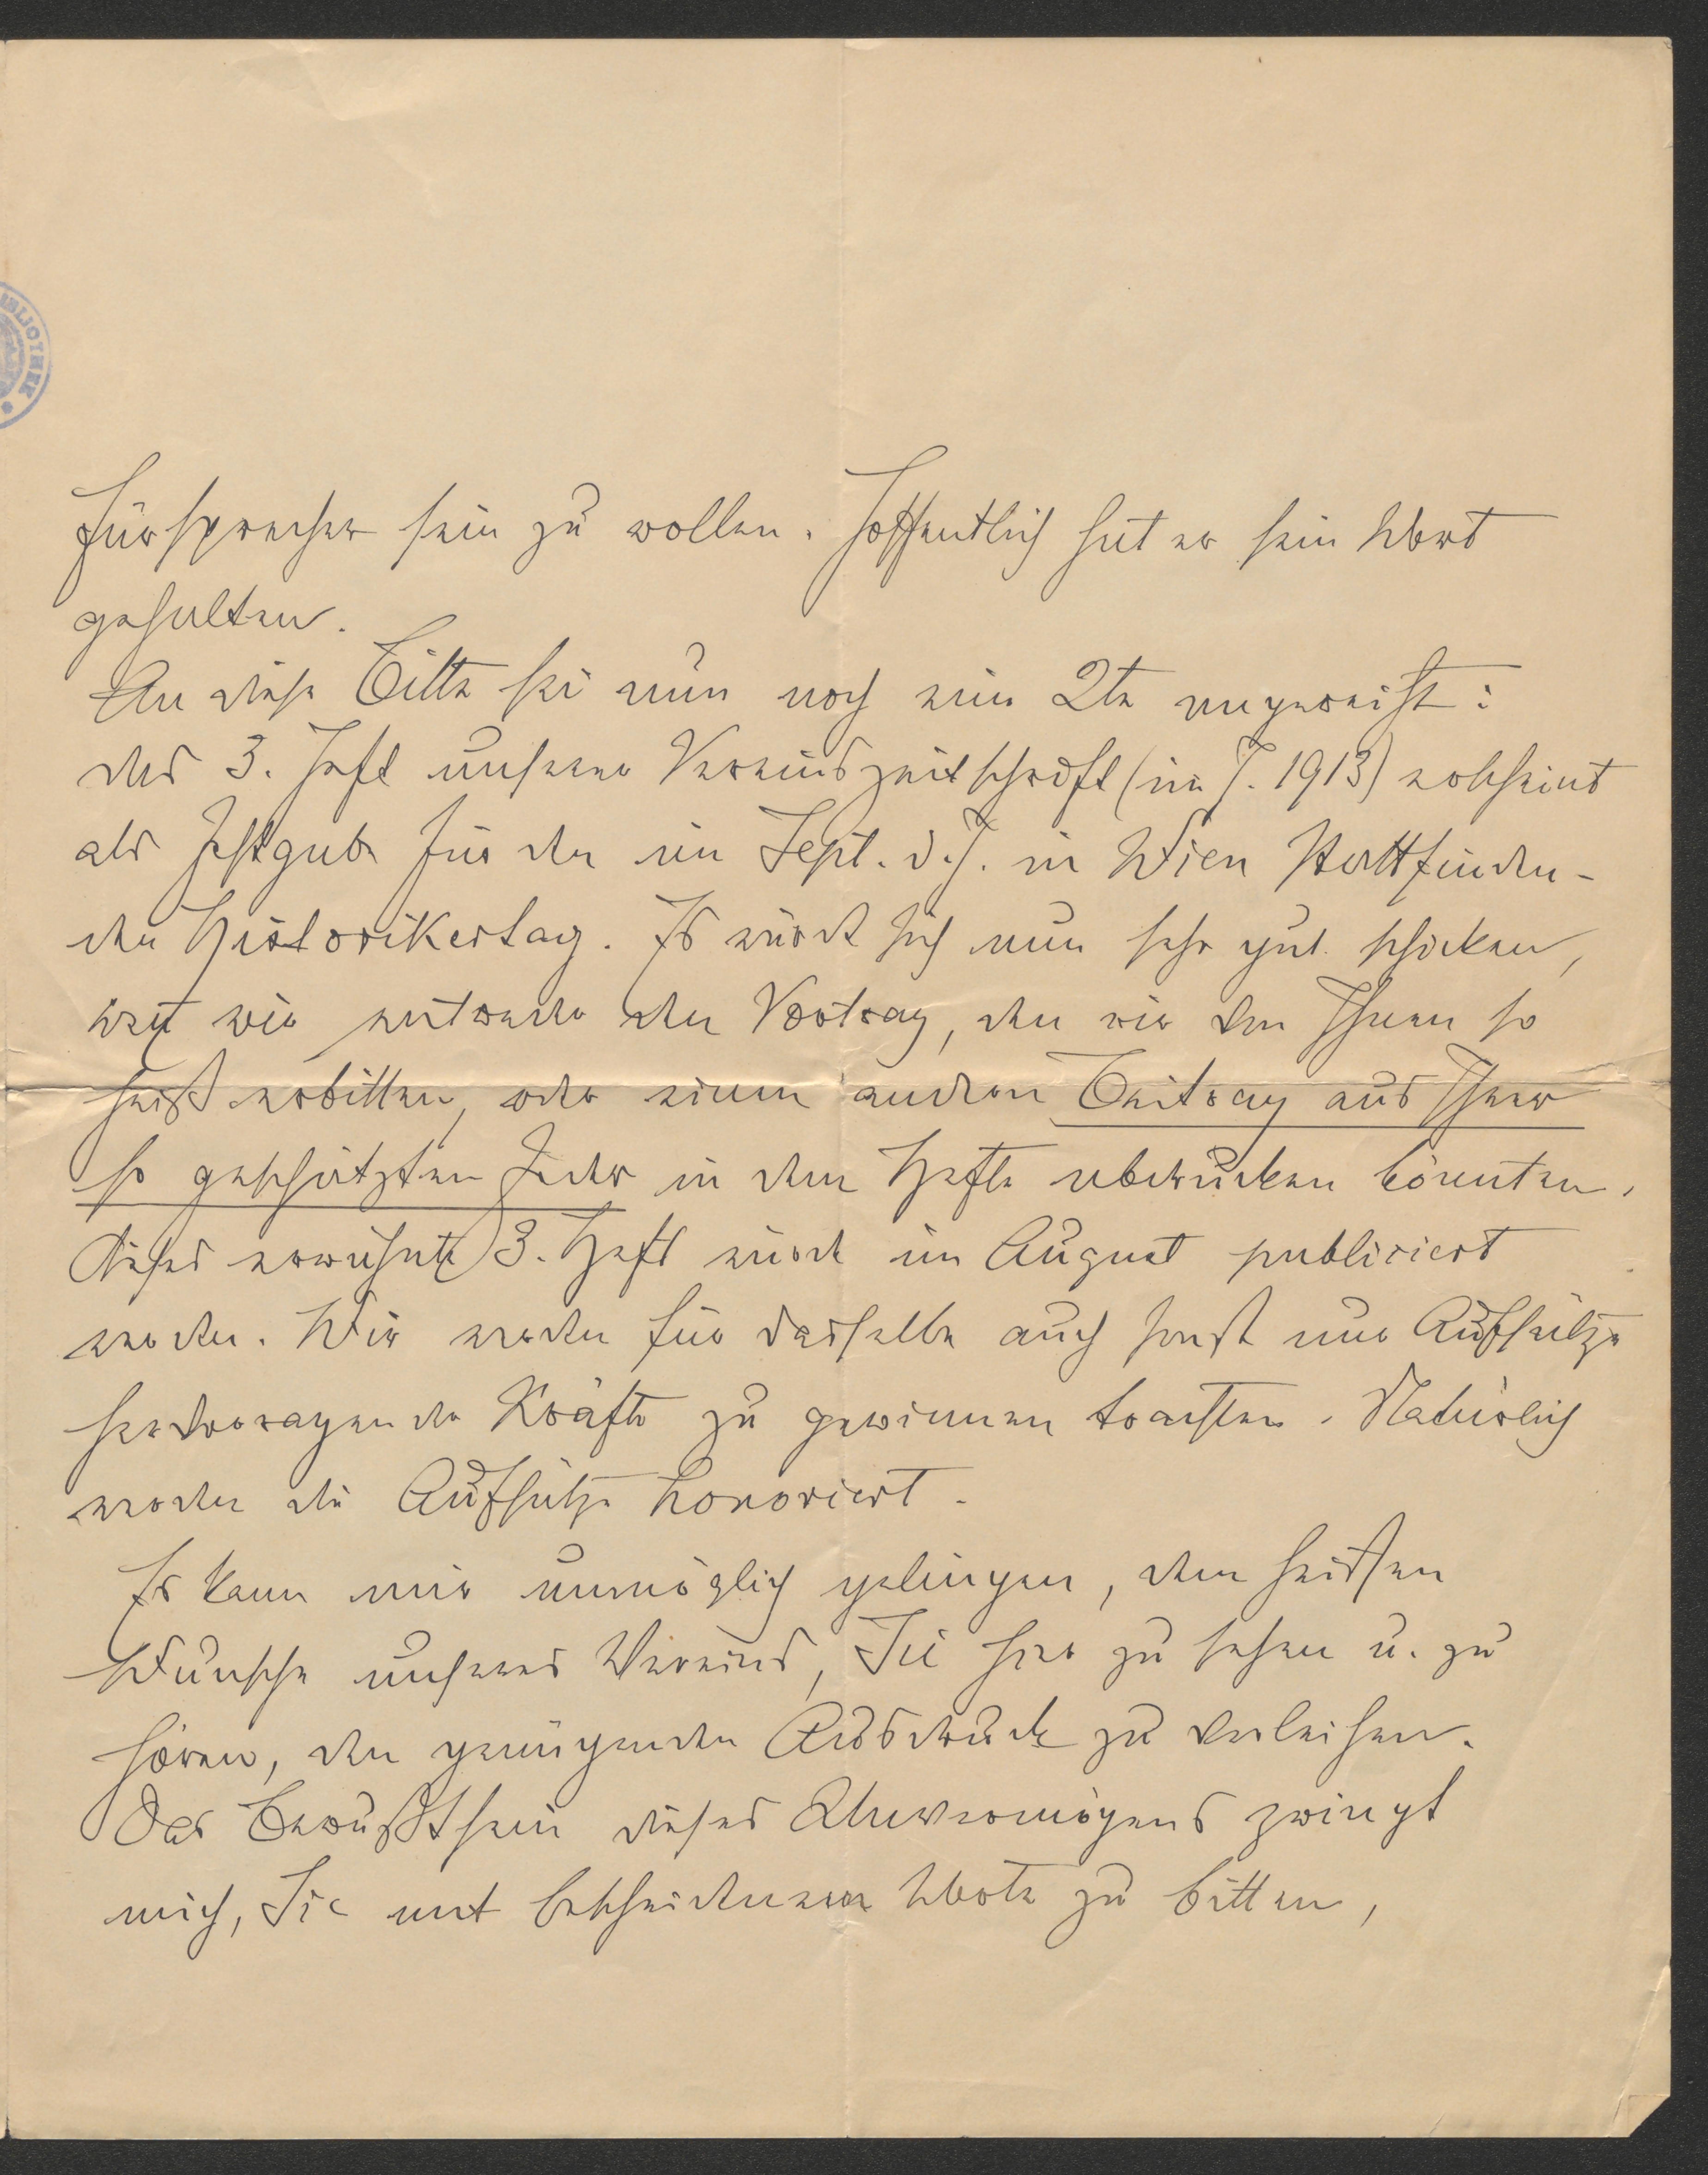 BIBLIOTHEK
Fürsprecher sein zu wollen. Hoffentlich hat er sein Wort
gehalten.
An diese Bitte sei nun noch eine 2te angereiht:
das 3. Heft unserer Vereinszeitschrift (im J. 1913) erscheint
als Festgabe für den im Sept. d. J. in Wien stattfinden-
den Historikertag. Es würde sich nun sehr gut schicken,
wenn wir entweder den Vortrag, den wir von Ihnen so
heiß erbitten, oder einen andern Beitrag aus Ihrer
so geschätzten Feder in dem Hefte abdrucken könnten.
Dieses erwähnte 3. Heft würde im August publiciert
werden. Wir werden für dasselbe auch sonst nur Aufsätze
hervorragender Kräfte zu gewinnen trachten. Natürlich
werden die Aufsätze honoriert.
Es kann mir unmöglich gelingen, dem heißen
Wunsche unseres Vereins, Sie hier zu sehen u. zu
hören, den genügenden Ausdruck zu verleihen.
Das Bewußtsein dieses Unvermögens zwingt
mich, Sie mit bescheidenem Worte zu bitten,